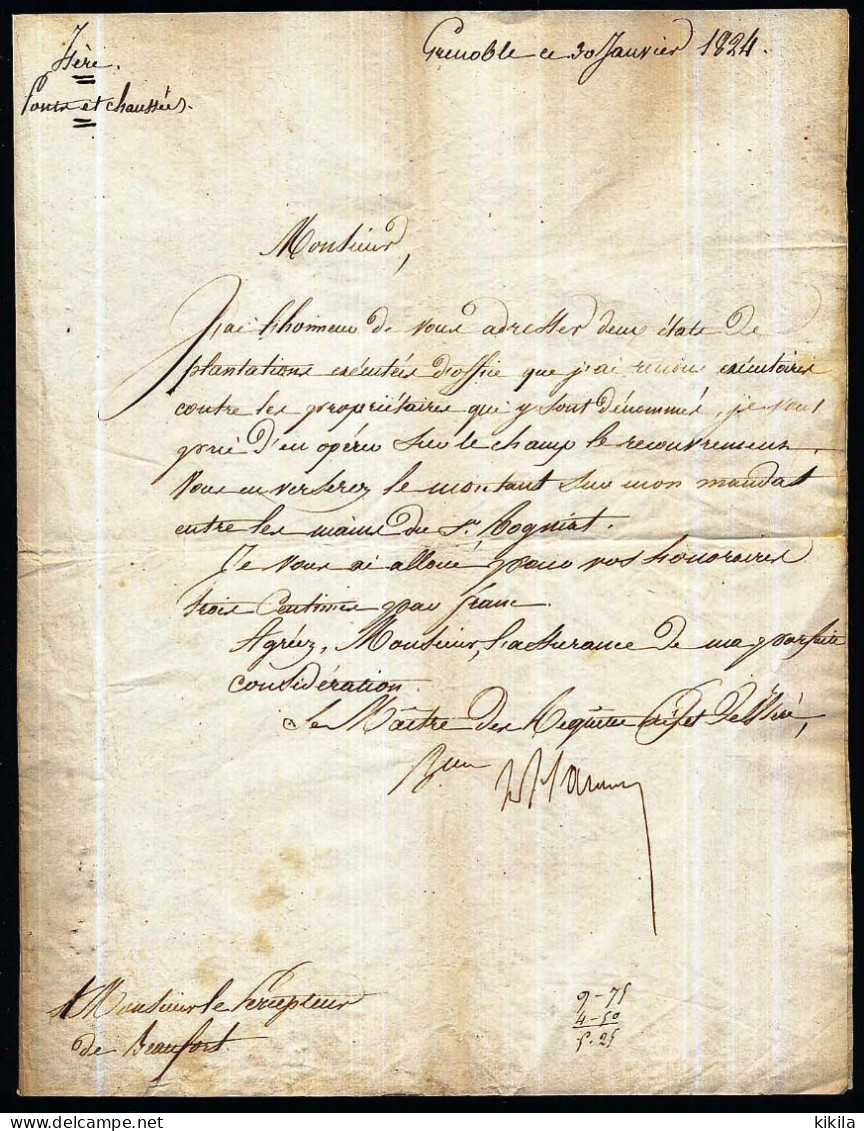 Isère.
Grenoble ce 30 Janvier 1824.
Ponts et chaussées.
Monsieur,
J'ai l'honneur de vous adresser deux états de
plantations exécutées d'office que j'ai rendus exécutoires
contre les propriétaires qui y sont dénommés, je vous
prie d'en opérer sur le champ le recouvrement.
Vous en verserez le montant sur mon mandat
entre les mains du Sr. Rogniat.
Je vous ai alloué pour vos honoraires
trois Centimes par franc.
Agréez, Monsieur, l'assurance de ma parfaite
considération.
Le Maître des Requêtes Préfet de l'Isère,
A Monsieur le Percepteur
de Beaufort.
9-75
4-50
5.25
kikila